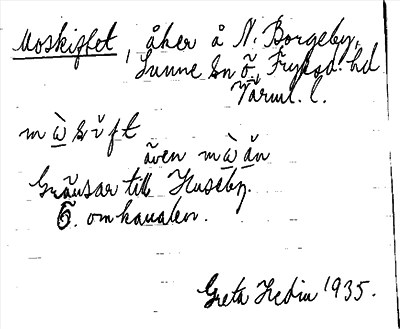 Moskiftet, åker å N. Borgeby,
Sunne sn Ö. Fryksd. hd
Värml. l.
m ù̲ s ĭ f t
även m ù̲ ă n
Gränsar till Huseby.
Ö. om kanalen.
Greta Hedin 1935.